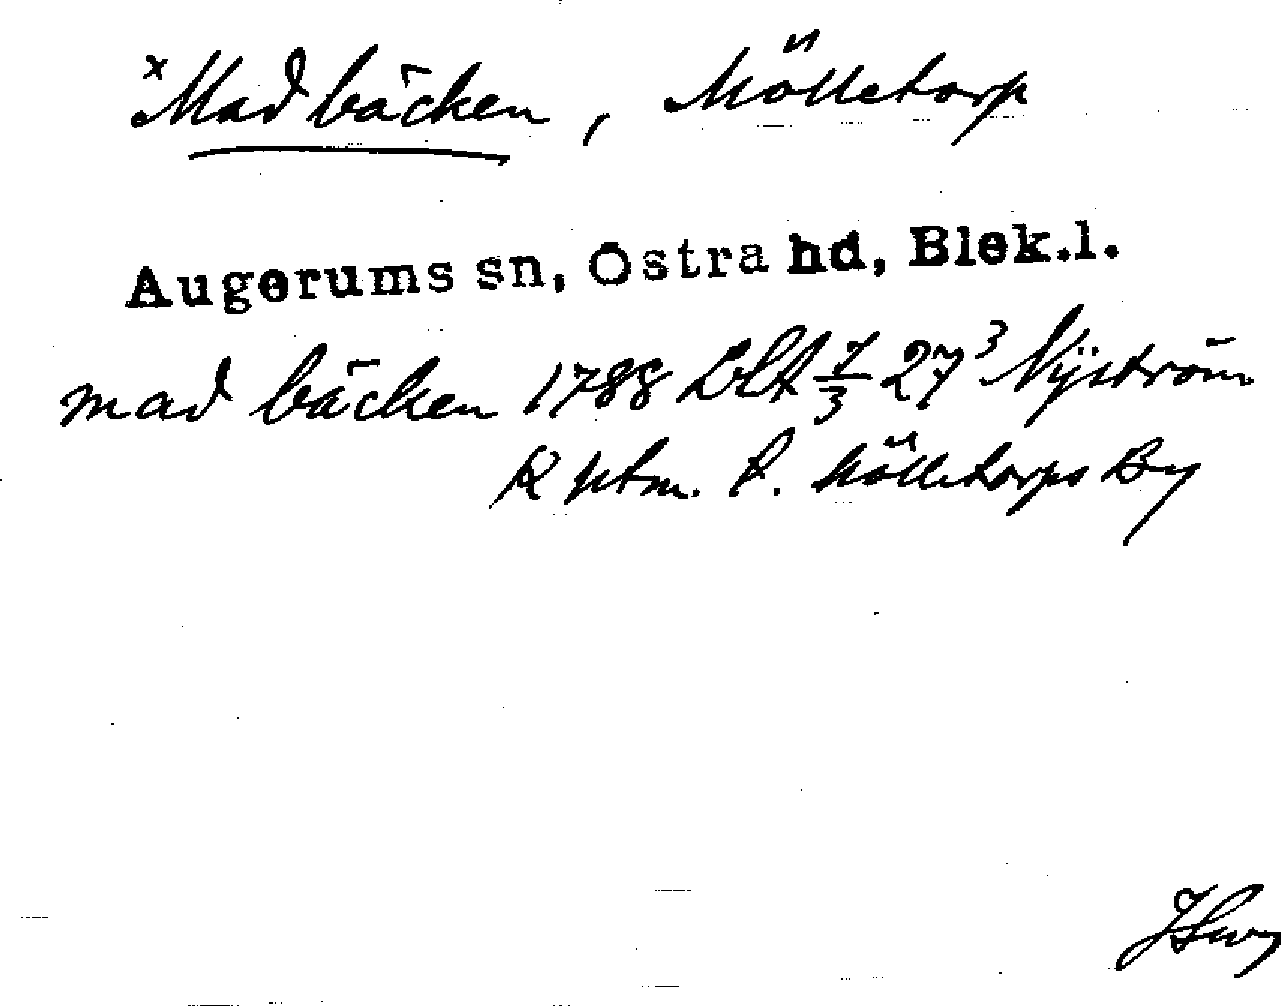 x Madbäcken, Mölletorp
Augerums sn, Östra hd, Blek.l.
mad bäcken 1788 Dlt 7/3 27³ Nyström
R utm. t. Mölletorps By